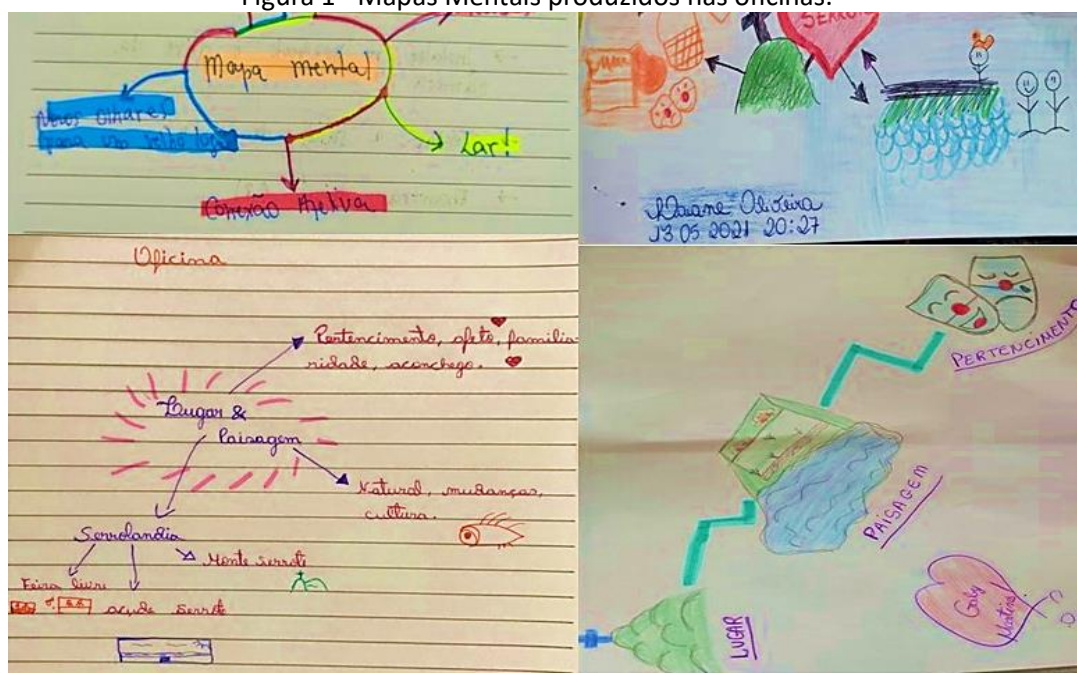 Figura 1 - Mapas Mentais produzidos nas oficinas.
Mapa mental
Novos olhares
para um velho lugar
Lar!
Conexão Afetiva
Oliveira
13 05 2021 20:27
Oficina
Pertencimento, afeto, familia-
ridade, aconchego.
Lugar &
Paisagem
Natural, mudanças,
cultura.
Serrolandia
Monte serrote
Feira livre
açude Serrote
PERTENCIMENTO
PAISAGEM
LUGAR
Gaby
Martins